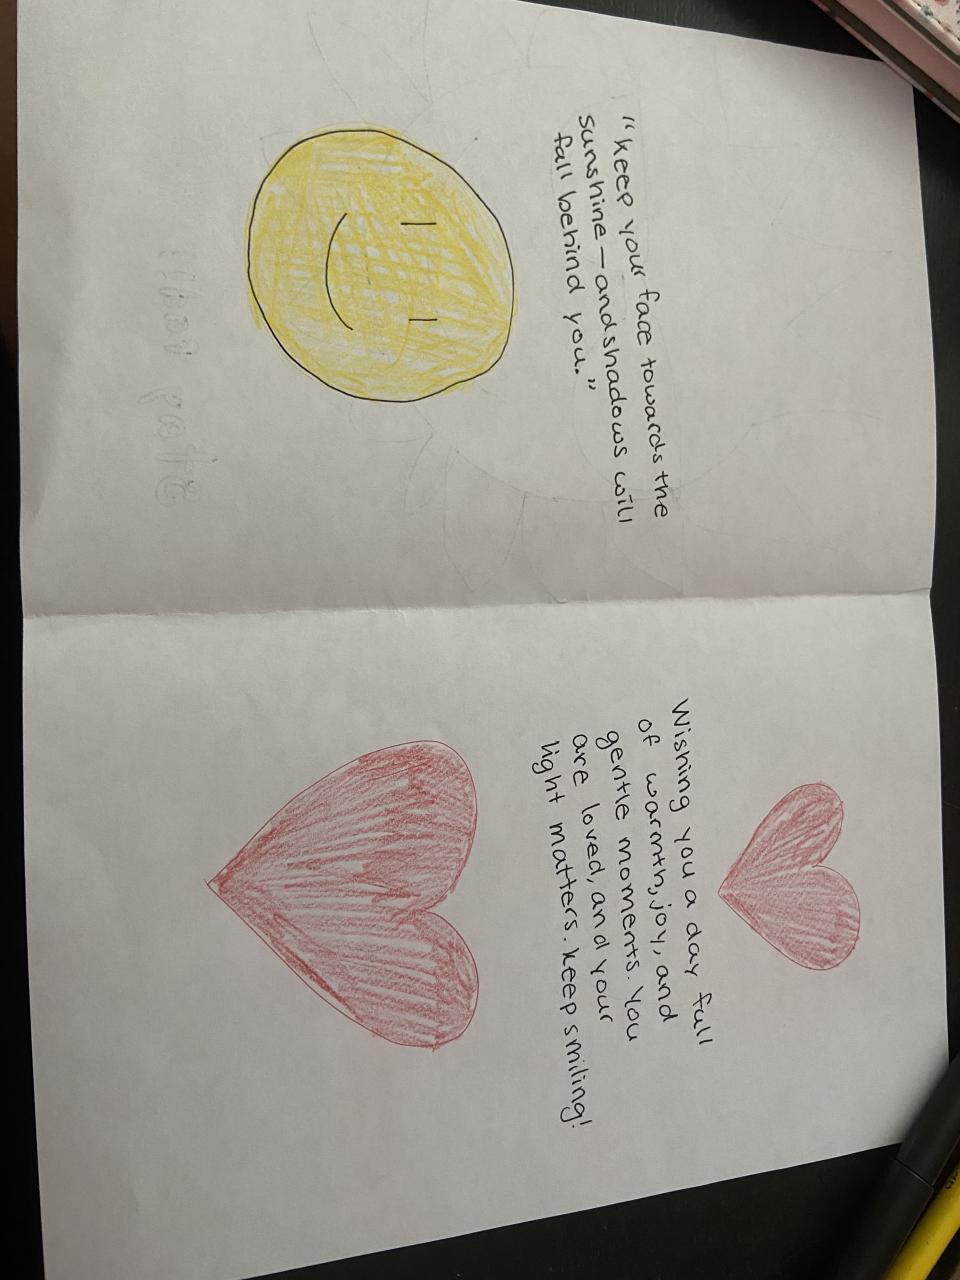 "keep your face towards the
sunshine — and shadows will
fall behind you."
Wishing you a day full
of warmth, joy, and
gentle moments. You
are loved, and your
light matters. keep smiling!